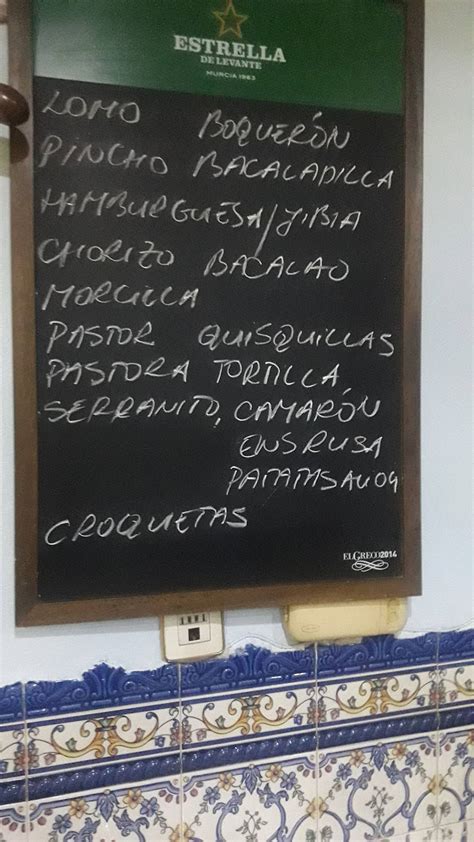 ESTRELLA
DE LEVANTE
MURCIA 1963
LOMO BOQUERÓN
PINCHO BACALADILLA
HAMBURGUESA/JIBIA
CHORIZO BACALAO
MORCILLA
PASTOR QUISQUILLAS
PASTORA TORTILLA
SERRANITO, CAMARÓN
ENSRUSA
PATATAS
CROQUETAS
ELGRECO2014